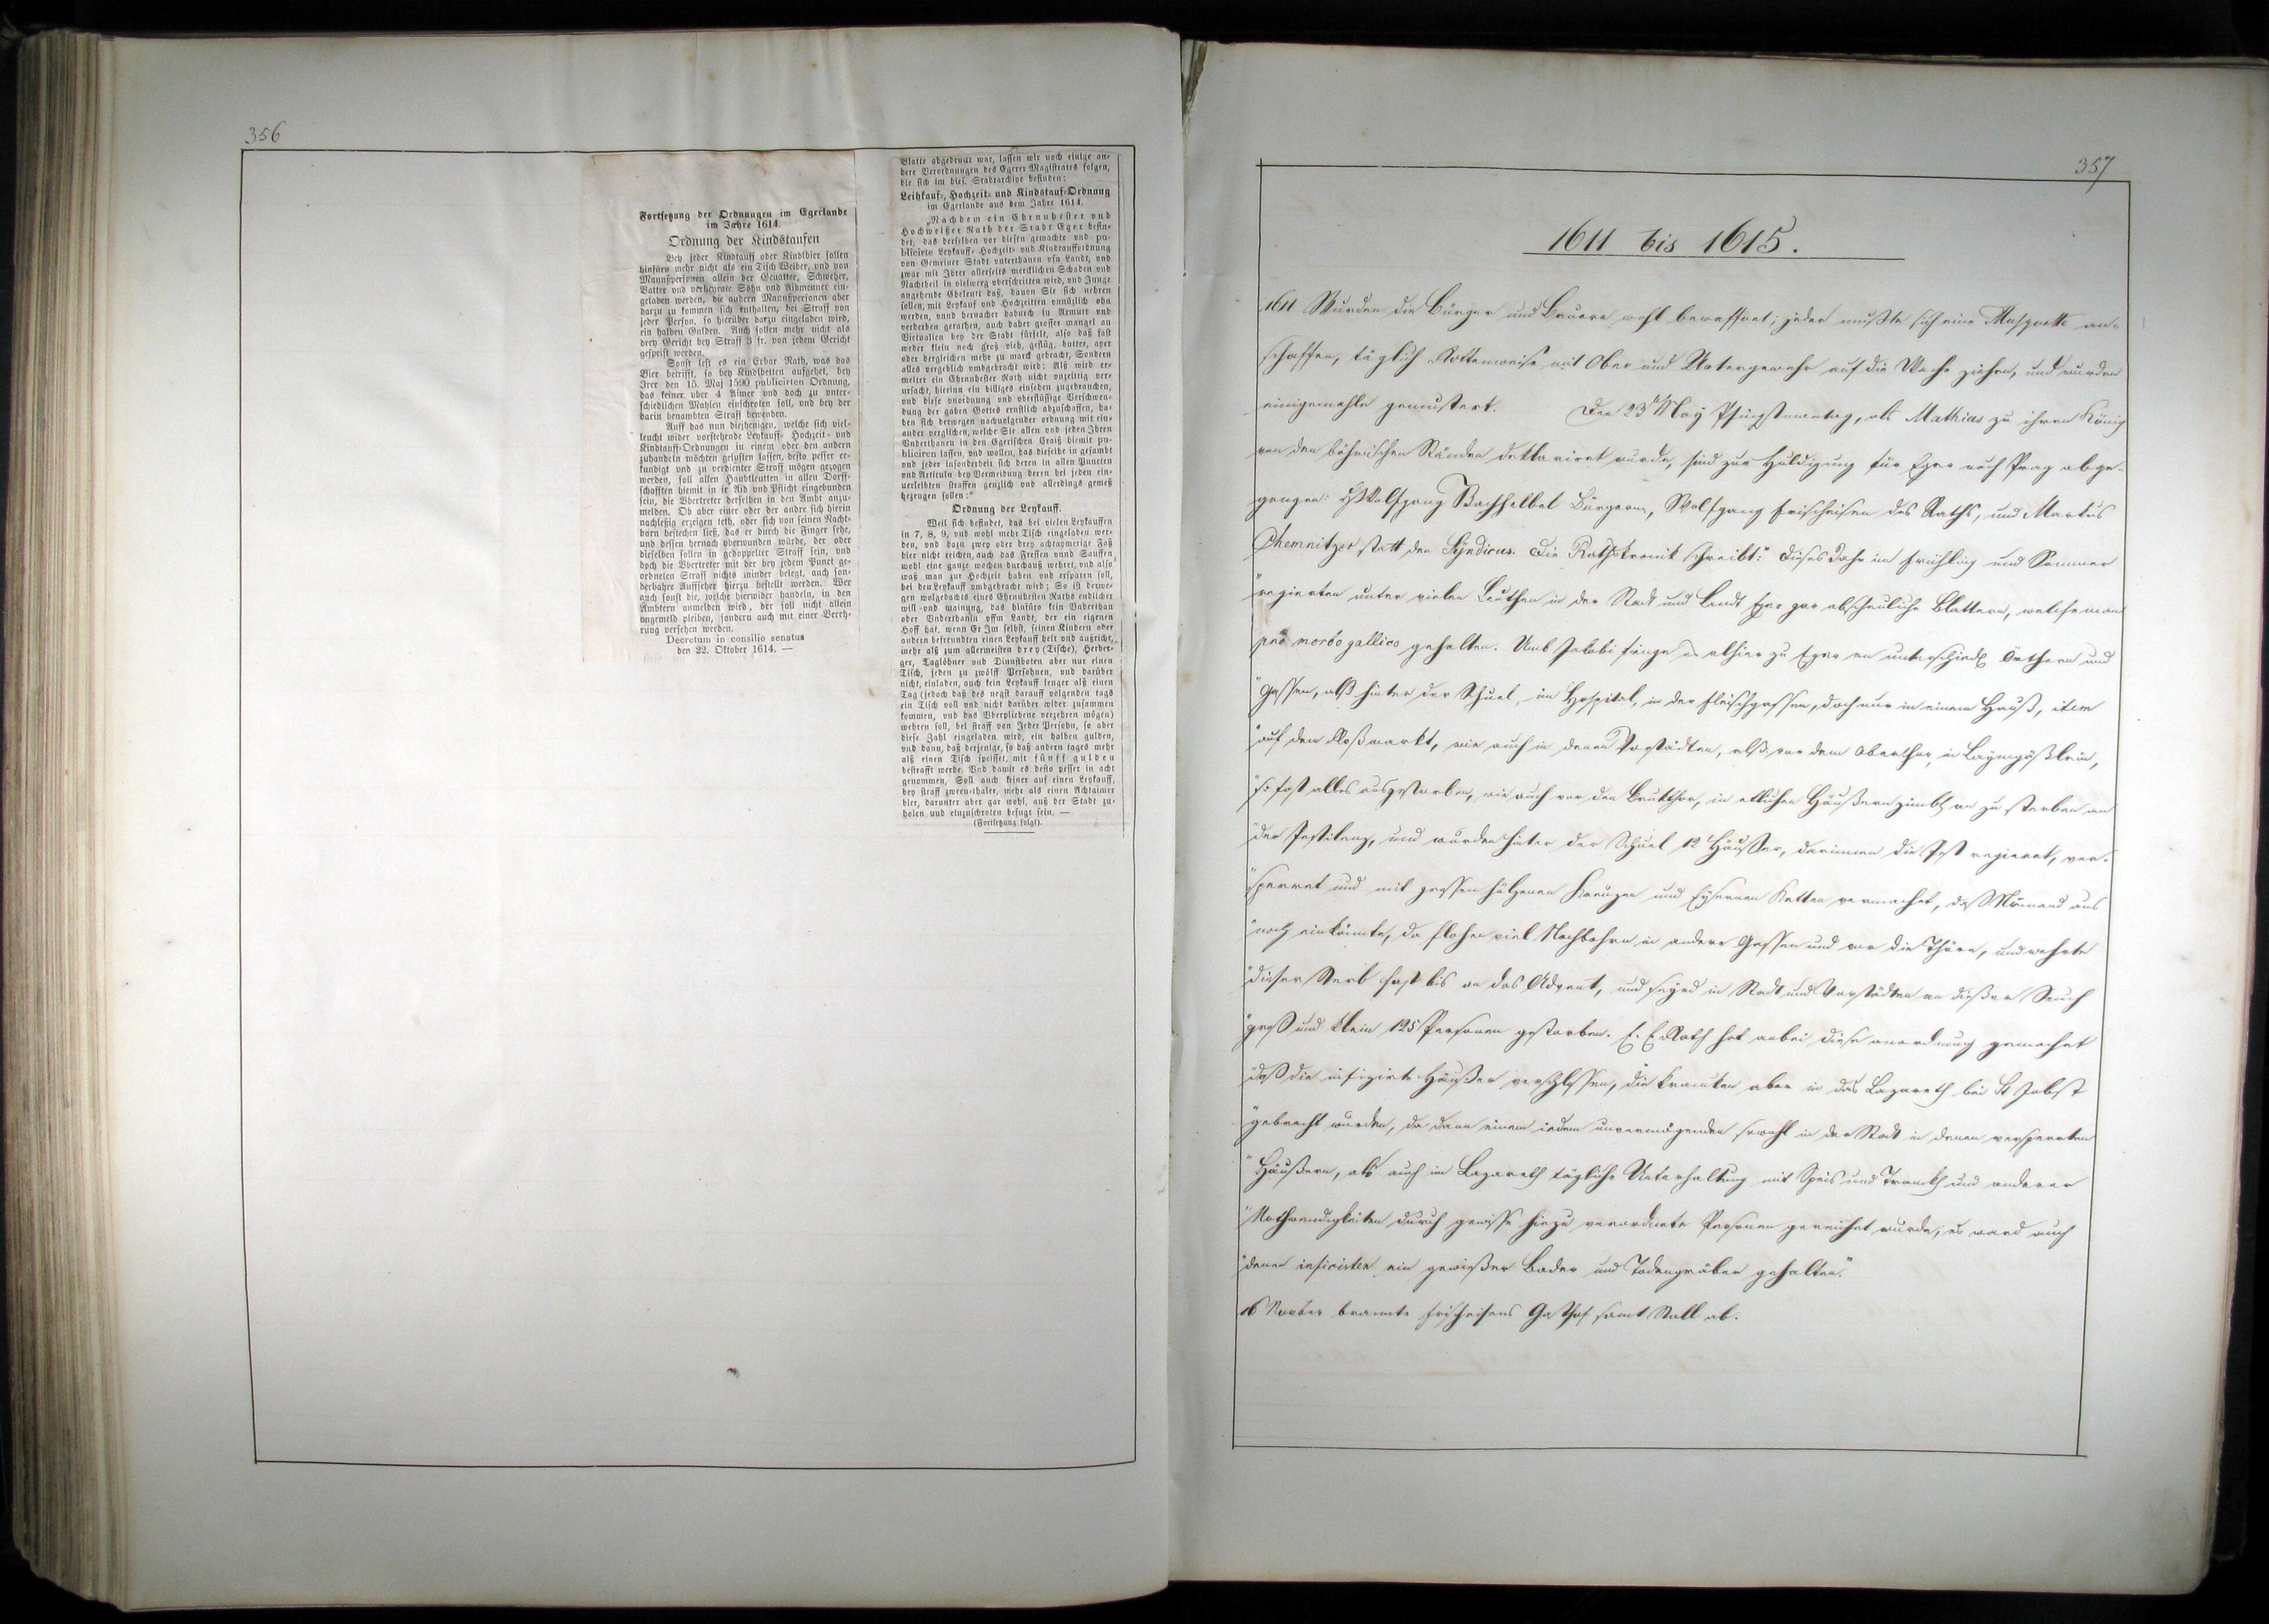 356
Fortsetzung der Ordnungen im Egerlande
im Jahre 1614.
Ordnung der Kindstaufen
Bey jeder Kindtauff oder Kindlbier sollen
hinfüro mehr nicht als ein Tisch Weiber, vnd von
Mannßpersonen allein der Gevatter, Schweher,
Vatter vnd verheyrate Söhn vnd Aidmenner ein-
geladen werden, die andern Mannßpersonen aber
darzu zu kommen sich enthalten, bei Straff von
jeder Person, so hierüber darzu eingeladen wird,
ein halben Gulden. Auch sollen mehr nicht als
drey Gericht bey Straff 3 fr. von jedem Gericht
gespeist werden.
Sonst lest es ein Erbar Rath, was das
Bier betrifft, so bey Kindlbetten aufgehet, bey
Irer den 15. Maj 1590 publicirten Ordnung,
das keiner vber 4 Aimer vnd doch zu vnter-
schiedlichen Mahlen einschroten soll, vnd bey der
darin benambten Straff bewenden.
Auff das nun diejhenigen, welche sich viel-
leucht wider vorstehende Leykauff- Hochzeit- vnd
Kindtauff-Ordnungen in einem oder den andern
zuhandeln möchten gelusten lassen, desto pesser er-
kundigt vnd zu verdienter Straff mögen gezogen
werden, soll allen Haubtleutten in allen Dorff-
schafften hiemit in ir Aid vnd Pflicht eingebunden
sein, die Vbertreter derselben in den Ambt anzu-
melden. Ob aber einer oder der andre sich hierin
nachleßig erzeigen teth, oder sich von seinen Nacht-
barn bestechen ließ, das er durch die Finger sehe,
und dessen hernach vberwunden würde, der oder
dieselben sollen in gedoppelter Straff sein, vnd
doch die Vbertreter mit der bey jedem Punct ge-
ordneten Straff nichts minder belegt, auch son-
derbahre Auffseher hierzu bestellt werden. Wer
auch sonst die, welche hierwider handeln, in den
Ambtern anmelden wird, der soll nicht allein
vngemeld pleiben, sondern auch mit einer Vereh-
rung versehen werden.
Decretum in consilio senatus
den 22. Oktober 1614. —
Blatte abgedruckt war, lassen wir noch einige an-
dere Verordnungen des Egerer Magistrates folgen,
die sich im dies. Stadtarchive befinden:
Leihkauf-, Hochzeit- und Kindstauf-Ordnung
im Egerlande aus dem Jahre 1614.
„Nachdem ein Ehrnuhester vnd
Hochweißer Rath der Stadt Eger befin-
det, das derselben vor diesen gemachte vnd pu-
blicirte Leykauff- Hochzeit- vnd Kindtauffordnung
von Gemeiner Stadt vnterthanen vfn Landt, vnd
zwar mit Ihrer allerseits mercklichen Schaden vnd
Nachtheil in vielweg vberschritten wird, vnd Junge
angehende Eheleutt daß, dauon Sie sich nehren
sollen, mit Leykauf vnd Hochzeitten vnnüzlich ohn
werden, vnnd hernacher dadurch in Armutt vnd
verderben gerathen, auch daher grosser mangel an
Victualien bey der Stadt fürfelt, also daß fast
weder klein noch groß vieh, geflüg, butter, ayer
oder dergleichen mehr zu marck gebracht, Sondern
alles vergeblich vmbgebracht wird: Alß wird er-
melter ein Ehrnuhester Rath nicht vnzeittig ver-
ursacht, hierinn ein billiges einsehen zugebrauchen,
vnd diese vnordnung vnd vberflüssige Verschwen-
dung der gaben Gottes ernstlich abzuschaffen, ha-
ben sich derwegen nachuolgender ordnung mit ein-
ander verglichen, welche Sie allen vnd jeden Ihren
Vnderthanen in den Egerischen Craiß hiemit pu-
bliciren lassen, vnd wollen, das dieselbe in gesambt
vnd jeder insonderheit sich deren in allen Puncten
vnd Articuln bey Vermeidung deren bei jeden ein-
uerleibten straffen genzlich vnd allerdings gemeß
bezeugen sollen:“
Ordnung der Leykauff.
Weil sich befindet, das bei vielen Leykauffen
in 7, 8, 9, vnd wohl mehr Tisch eingeladen wer-
den, vnd dazu zwey oder drey achtaymerige Faß
bier nicht reichen, auch das Fressen vnnd Sauffen
wohl eine ganze wochen durchauß wehret, vnd also
waß man zur Hochzeit haben vnd ersparen soll,
bei den Leykauff vmbgebracht wird; So ist derwe-
gen wolgedachts eines Ehrnuhesten Raths endlicher
will -vnd mainung, das hinfüro kein Vnderthan
oder Vnderthanin vffm Landt, der ein eigenen
Hoff hat, wenn Er Im selbst, seinen Kindern oder
andern befreundten einen Leykauff helt vnd außricht,
mehr alß zum allermeisten drey (Tische), Herber-
ger, Taglöhner vnd Dinnstboten aber nur einen
Tisch, jeden zu zwölff Persohnen, vnd darüber
nicht, einladen, auch kein Leykauff lenger alß einen
Tag (jedoch daß des negst darauff volgenden tags
ein Tisch voll vnd nicht darüber wider zusammen
kommen, vnd das Vberpliebene verzehren mögen)
wehren soll, bei straff von Jeder Persohn, so aber
diese Zahl eingeladen wird, ein halben gulden,
vnd dann, daß derjenige, so daß andern tages mehr
alß einen Tisch speisset, mit fünff gulden
bestrafft werde. Vnd damit es desto pesser in acht
genommen, Soll auch keiner auf einen Leykauff,
bey straff zween thaler, mehr als einen Achtaimer
bier, darunter aber gar wohl, auß der Stadt zu-
holen vnd einzuschroten befugt sein. —
(Fortsetzung folgt).
357
1611 bis 1615.
1611 Wurden die Bürger und Bauern wohl bewaffnet; jeder mußte sich eine Musquette an-
schaffen, täglich Rottenweise mit Ober und Untergewehr auf die Wache ziehen, und wurden
einigemahle gemustert. Den 23t May Pfingstmontag, als Mathias zu ihren König
von den böhmischen Ständen deklariret wurde, sind zur Huldigung für Eger nach Prag abge-
gangen: H Wolfgang Bachhelbel Bürgerm, Wolfgang Frischeisen des Raths, und Markus
Chemnitzer statt den Syndicus. Die Rathskronik schreibt: "Dieses Jahr im Frühling und Sommer
"regierten unter vielen Leuthen in der Stadt und Landt Eger gar abscheuliche Blattern, welche man
"pro morbo gallico gehalten. Umb Jakobi fienge es alhier zu Eger an unterschiedl Örthern und
"Gassen, alß hinter der Schuel, im Hospital, in der Fleischgassen, doch nur in einem Hauß, item
"auf dem Roßmarkt, wie auch in denen Vorstädten, alß vor dem Oberthor, in Laymgäßlein,
"so fast alles ausgestorben, wie auch vor den Brukthor, in etlichen Häußern zimbl an zu sterben an
"der Pestilenz, und wurden hinter der Schuel 12 Häußer, darinnen die Pest regieret, ver-
"sperret und mit grossen hülzenen Kreuzen und Eysernen Ketten vermachet, daß Niemand aus
"noch einkönnte, da flohen viel Nachbahrn in andere Gassen und vor die Thore, und wehrte
"dieser Sterb fast bis an das Advent, und seynd in Stadt und Vorstädten an dießer Seuch
"groß und klein 125 Personen gestorben. E. E. Rath hat anbei diese anordnung gemachet
"daß die infizirte Häußer verschlossen, die Kranken aber in das Lazareth bei St Jobst
"gebracht wurden, da dann einem jedem unvermögenden sowohl in der Stadt in denen versperrten
"Häußern, als auch im Lazareth tägliche Unterhaltung mit Speis und Tranckh und anderer
"Nothwendigkeiten durch gewisse hiezu verordnete Personen gereichet wurde; es ward auch
"denen inficirten ein gewißer Bader und Todengräber gehalten."
16 November brannte Frischeisens Gasthof samt Stall ab.